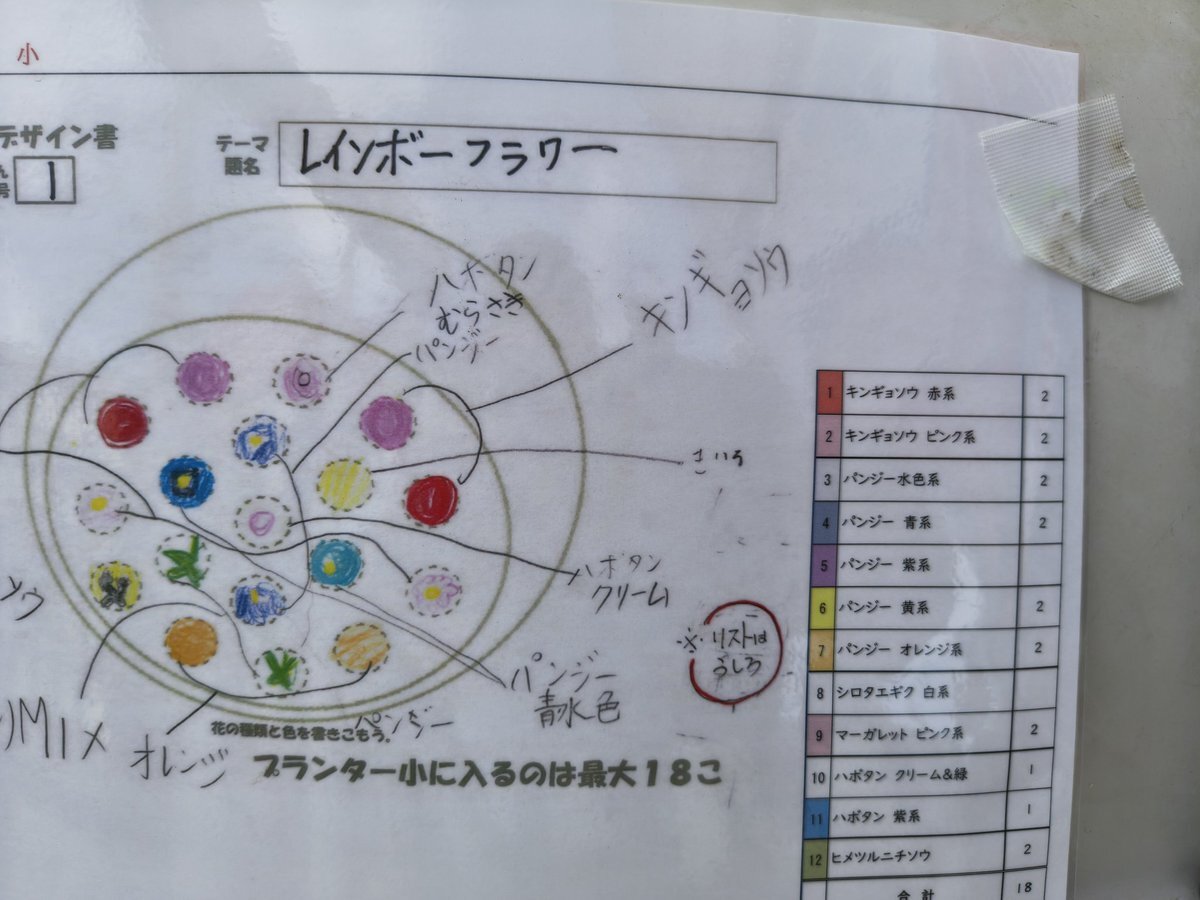 小
デザイン書
号 1
テーマ
題名
レインボーフラワー
ハボタン
むらさき
パンジー
キンギョソウ
きいろ
ハボタン
クリーム
※リストは
うしろ
パンジー
青水色
ソウ
MIX
オレンジ
パンジー
花の種類と色を書きこもう。
プランター小に入るのは最大18こ
1 キンギョソウ 赤系 2
2 キンギョソウ ピンク系 2
3 パンジー水色系 2
4 パンジー 青系 2
5 パンジー 紫系
6 パンジー 黄系 2
7 パンジー オレンジ系 2
8 シロタエギク 白系
9 マーガレット ピンク系 2
10 ハボタン クリーム&緑 1
11 ハボタン 紫系 1
12 ヒメツルニチソウ 2
合計 18